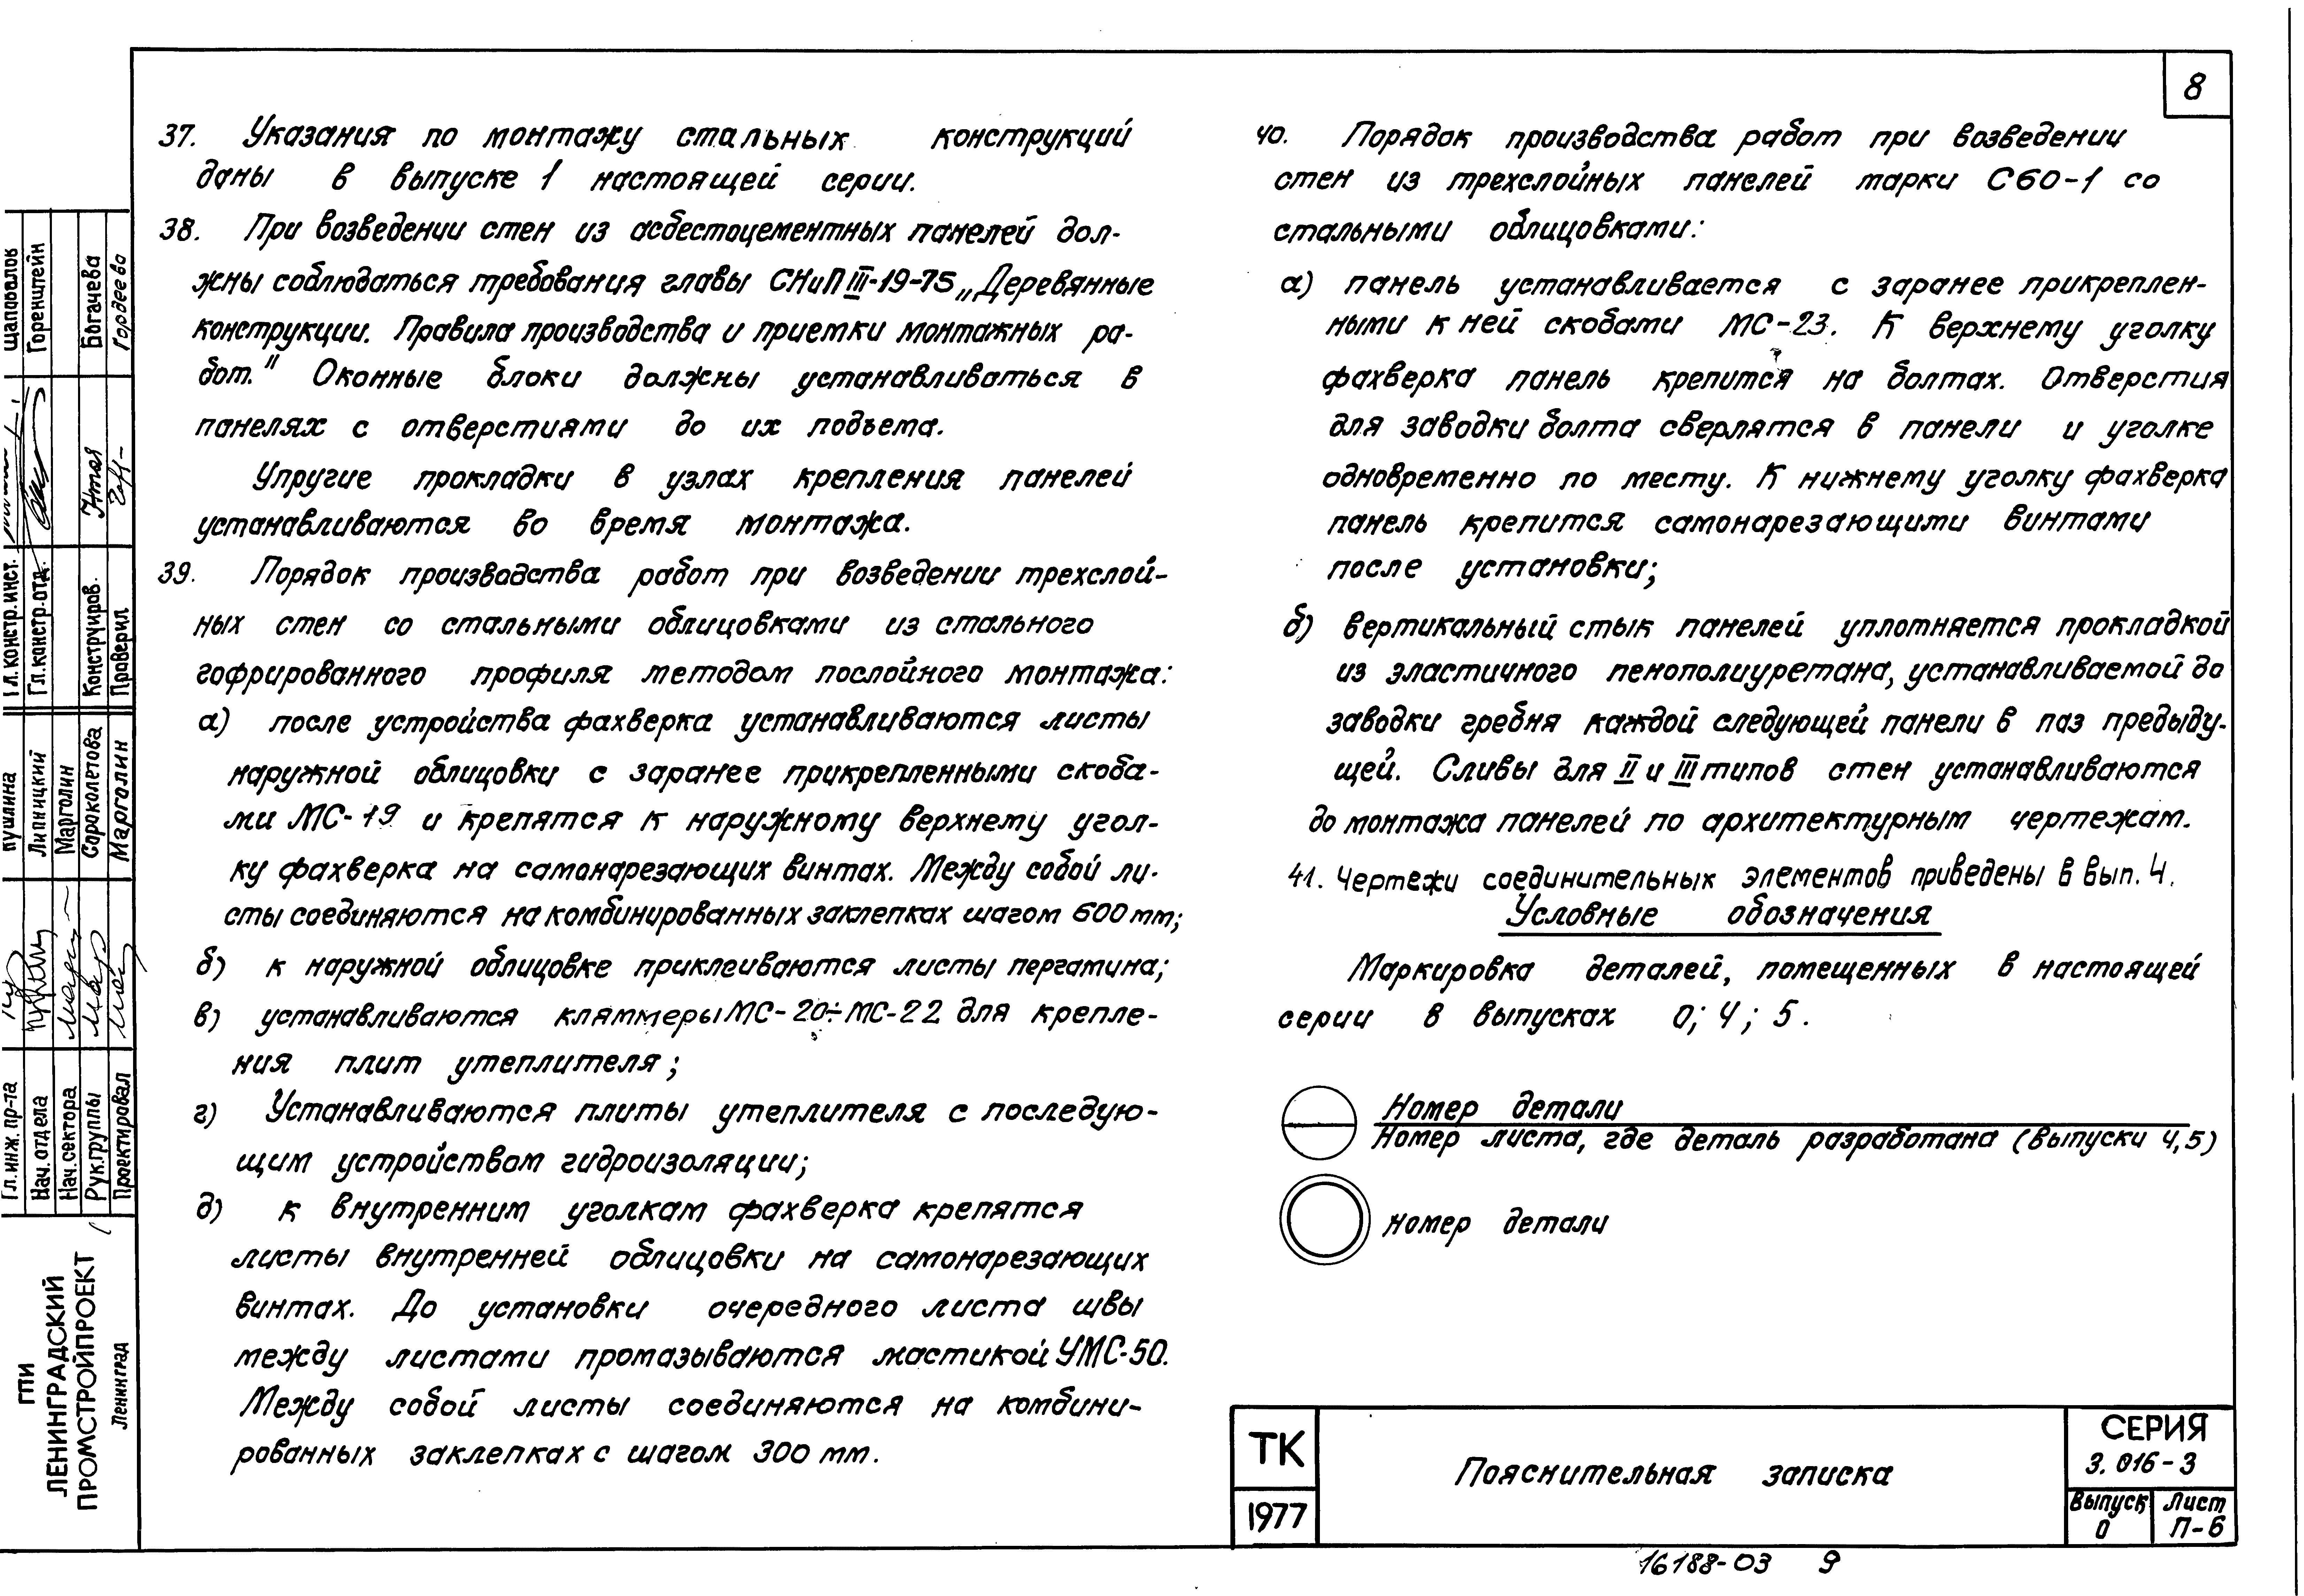 8
37. Указания по монтажу стальных конструкций
даны в выпуске 1 настоящей серии.
38. При возведении стен из асбестоцементных панелей дол-
жны соблюдаться требования главы СНиП III-19-75 „Деревянные
конструкции. Правила производства и приетки монтажных ра-
бот." Оконные блоки должны устанавливаться в
панелях с отверстиями до их подъема.
Упругие прокладки в узлах крепления панелей
устанавливаются во время монтажа.
39. Порядок производства работ при возведении трехслой-
ных стен со стальными облицовками из стального
гофрированного профиля методом послойного монтажа:
а) после устройства фахверка устанавливаются листы
наружной облицовки с заранее прикрепленными скоба-
ми МС-19 и крепятся к наружному верхнему угол-
ку фахверка на самонарезающих винтах. Между собой ли-
сты соединяются на комбинированных заклепках шагом 600 мм;
б) к наружной облицовке приклеиваются листы пергамина;
в) устанавливаются кляммеры МС-20÷МС-22 для крепле-
ния плит утеплителя;
г) Устанавливаются плиты утеплителя с последую-
щим устройством гидроизоляции;
д) к внутренним уголкам фахверка крепятся
листы внутренней облицовки на самонарезающих
винтах. До установки очередного листа швы
между листами промазываются мастикой УМС-50.
Между собой листы соединяются на комбини-
рованных заклепках с шагом 300 мм.
40. Порядок производства работ при возведении
стен из трехслойных панелей марки С60-1 со
стальными облицовками:
а) панель устанавливается с заранее прикреплен-
ными к ней скобами МС-23. К верхнему уголку
фахверка панель крепится на болтах. Отверстия
для заводки болта сверлятся в панели и уголке
одновременно по месту. К нижнему уголку фахверка
панель крепится самонарезающими винтами
после установки;
б) вертикальный стык панелей уплотняется прокладкой
из эластичного пенополиуретана, устанавливаемой до
заводки гребня каждой следующей панели в паз предыду-
щей. Сливы для II и III типов стен устанавливаются
до монтажа панелей по архитектурным чертежам.
41. Чертежи соединительных элементов приведены в вып. 4.
Условные обозначения
Маркировка деталей, помещенных в настоящей
серии в выпусках 0; 4; 5.
Номер детали
Номер листа, где деталь разработана (выпуски 4,5)
Номер детали
ТК
1977
Пояснительная записка
СЕРИЯ
3.016-3
Выпуск
0
Лист
П-6
16188-03 9
Гл. констр. инст. Щаповалов
Гл. констр. отд. Горенштейн
Конструиров. Богачева
Проверил Гордеева
Гл. инж. пр-та Пушлина
Нач. отдела Липницкий
Нач. сектора Марголин
Рук. группы Сороколетова
Проектировал Марголин
ГПИ
ЛЕНИНГРАДСКИЙ
ПРОМСТРОЙПРОЕКТ
Ленинград